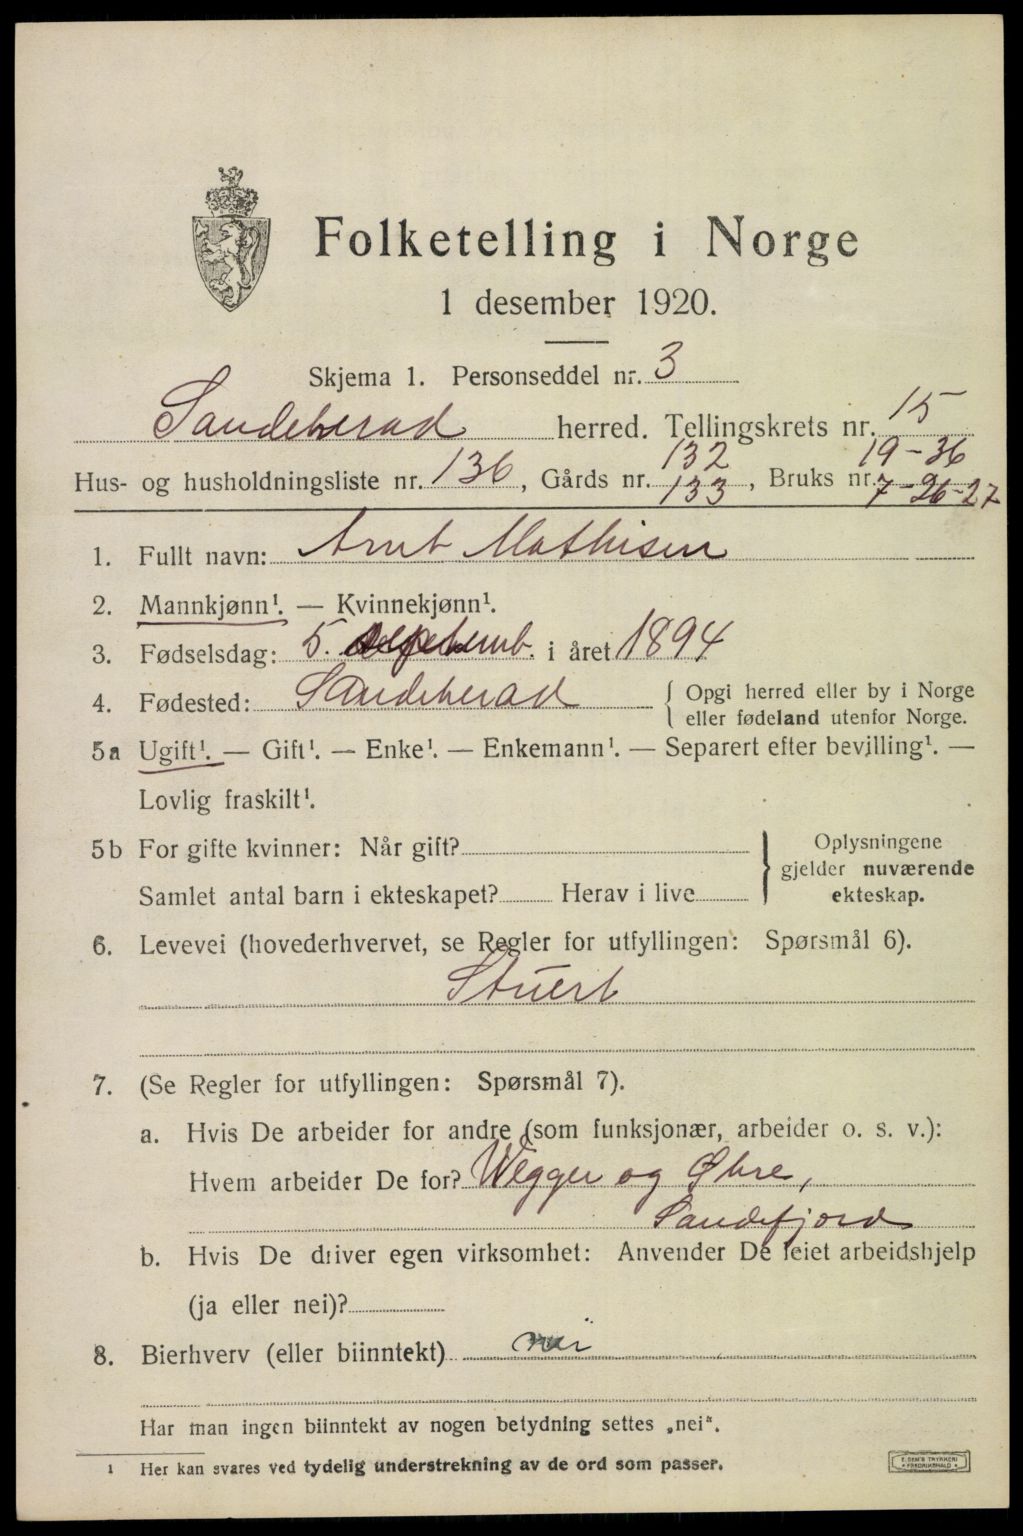 Folketelling i Norge
1 desember 1920.
Skjema 1. Personseddel nr. 3
Sandeherad herred. Tellingskrets nr. 15
132 19-36
Hus- og husholdningsliste nr. 136, Gårds nr. 133, Bruks nr. 7-26-27
1. Fullt navn: Arnt Mathisen
2. Mannkjønn¹. — Kvinnekjønn¹.
3. Fødselsdag: 5. i året 1894
4. Fødested: Sandeherad { Opgi herred eller by i Norge
eller fødeland utenfor Norge.
5a Ugift¹. — Gift¹. — Enke¹. — Enkemann¹. — Separert efter bevilling¹. —
Lovlig fraskilt¹.
5b For gifte kvinner: Når gift? } Oplysningene
gjelder nuværende
Samlet antal barn i ekteskapet? Herav i live ekteskap.
6. Levevei (hovederhvervet, se Regler for utfyllingen: Spørsmål 6).
Stuert
7. (Se Regler for utfyllingen: Spørsmål 7).
a. Hvis De arbeider for andre (som funksjonær, arbeider o. s. v.):
Hvem arbeider De for? Wegger og Øhre,
Sandefjord
b. Hvis De driver egen virksomhet: Anvender De leiet arbeidshjelp
(ja eller nei)?
8. Bierhverv (eller biinntekt) nei
Har man ingen biinntekt av nogen betydning settes „nei“.
¹ Her kan svares ved tydelig understrekning av de ord som passer.
E. SEM'S TRYKKERI
FREDRIKSHALD